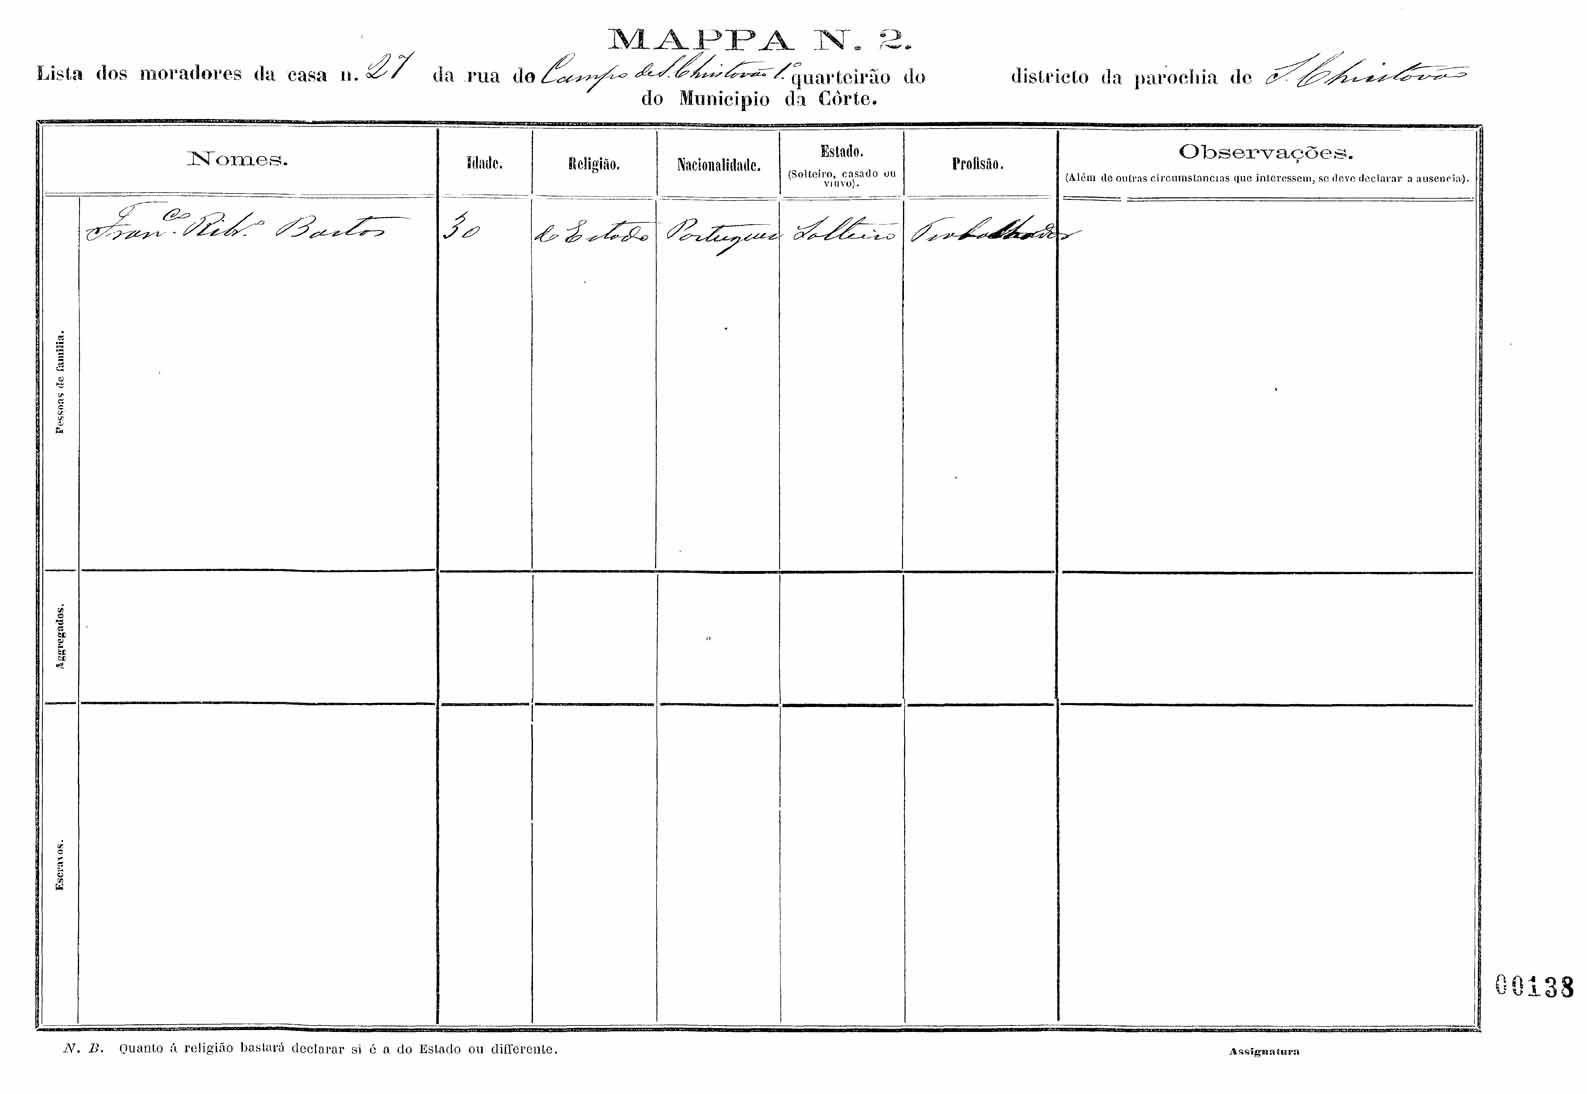 MAPPA N. 2.
Lista dos moradores da casa n. 27 da rua do Campo de S. Christovão 1.º quarteirão do districto da parochia de S. Christovão
do Municipio da Côrte.
Nomes. Idade. Religião. Nacionalidade. Estado. (Solteiro, casado ou viuvo). Profisão. Observações. (Além de outras circumstancias que interessem, se deve declarar a ausencia).
Pessoas de familia.
Fran.co Ribr.o Bastos 30 do Estado Portuguez Solteiro Trabalhador
Aggregados.
Escravos.
00138
N. B. Quanto á religião bastará declarar si é a do Estado ou differente.
Assignatura